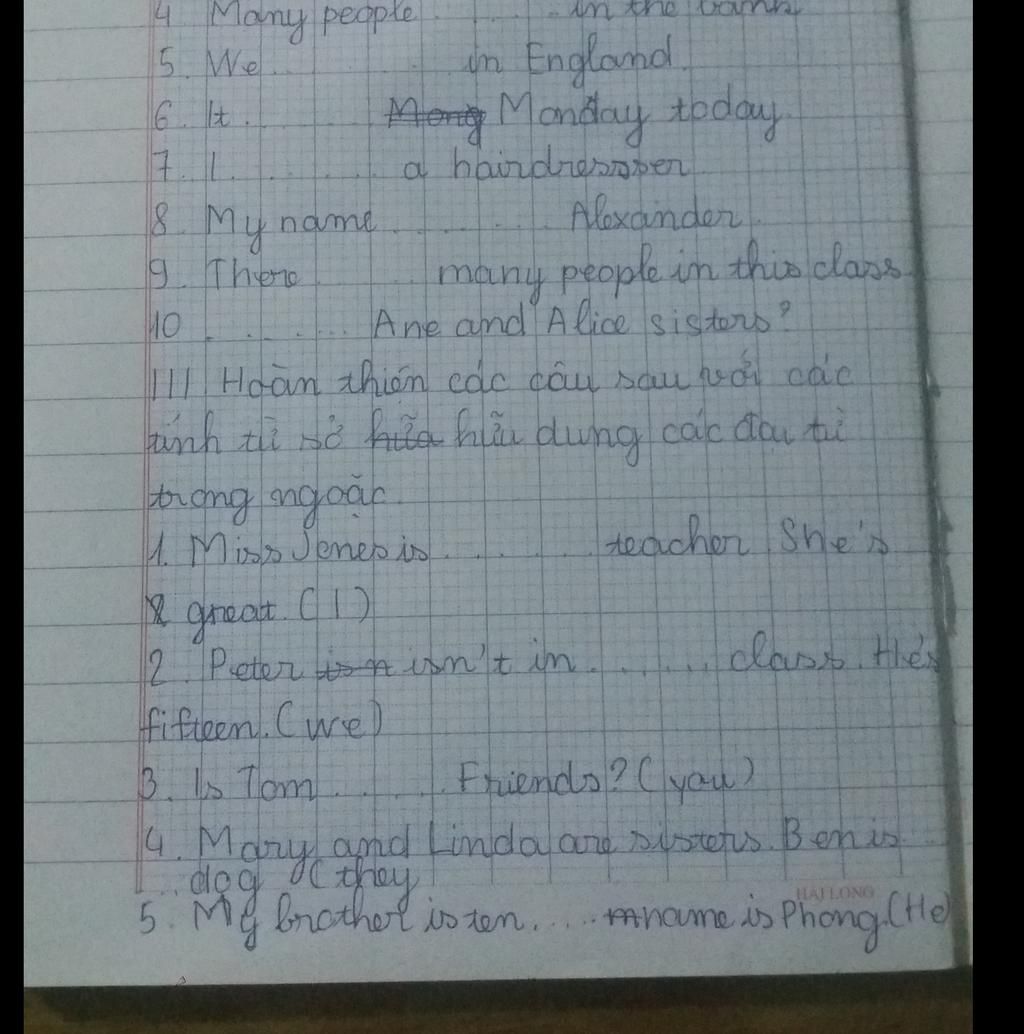 4. Many people ........ in the
5. We ........ in England.
6. It ........ Monday today.
7. I ........ a hairdressser
8. My name ........ Alexander.
9. There ........ many people in this class.
10 ........ Ane and Alice sisters?
III Hoàn thiện các câu sau với các
tính từ sở hữu dung các đau từ
trong ngoặc
1. Miss Jones is ........ teacher She's
great. (I)
2. Peter isn't in ........ class. thés
fifteen. (we)
3. Is Tom ........ Friends? (you)
4. Mary and Linda are sisters. Ben is
... dog (they
HẢI LONG
5. My brother is ten ..... name is Phong. (He)